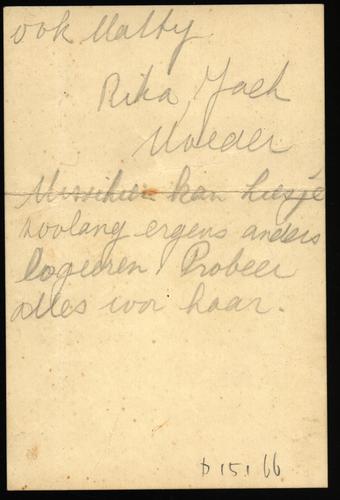 ook Matty
Rika, Jach
Moeder
Misschien kan Liesje
zoolang ergens anders
logeeren. Probeer
alles voor haar.
D 151 66